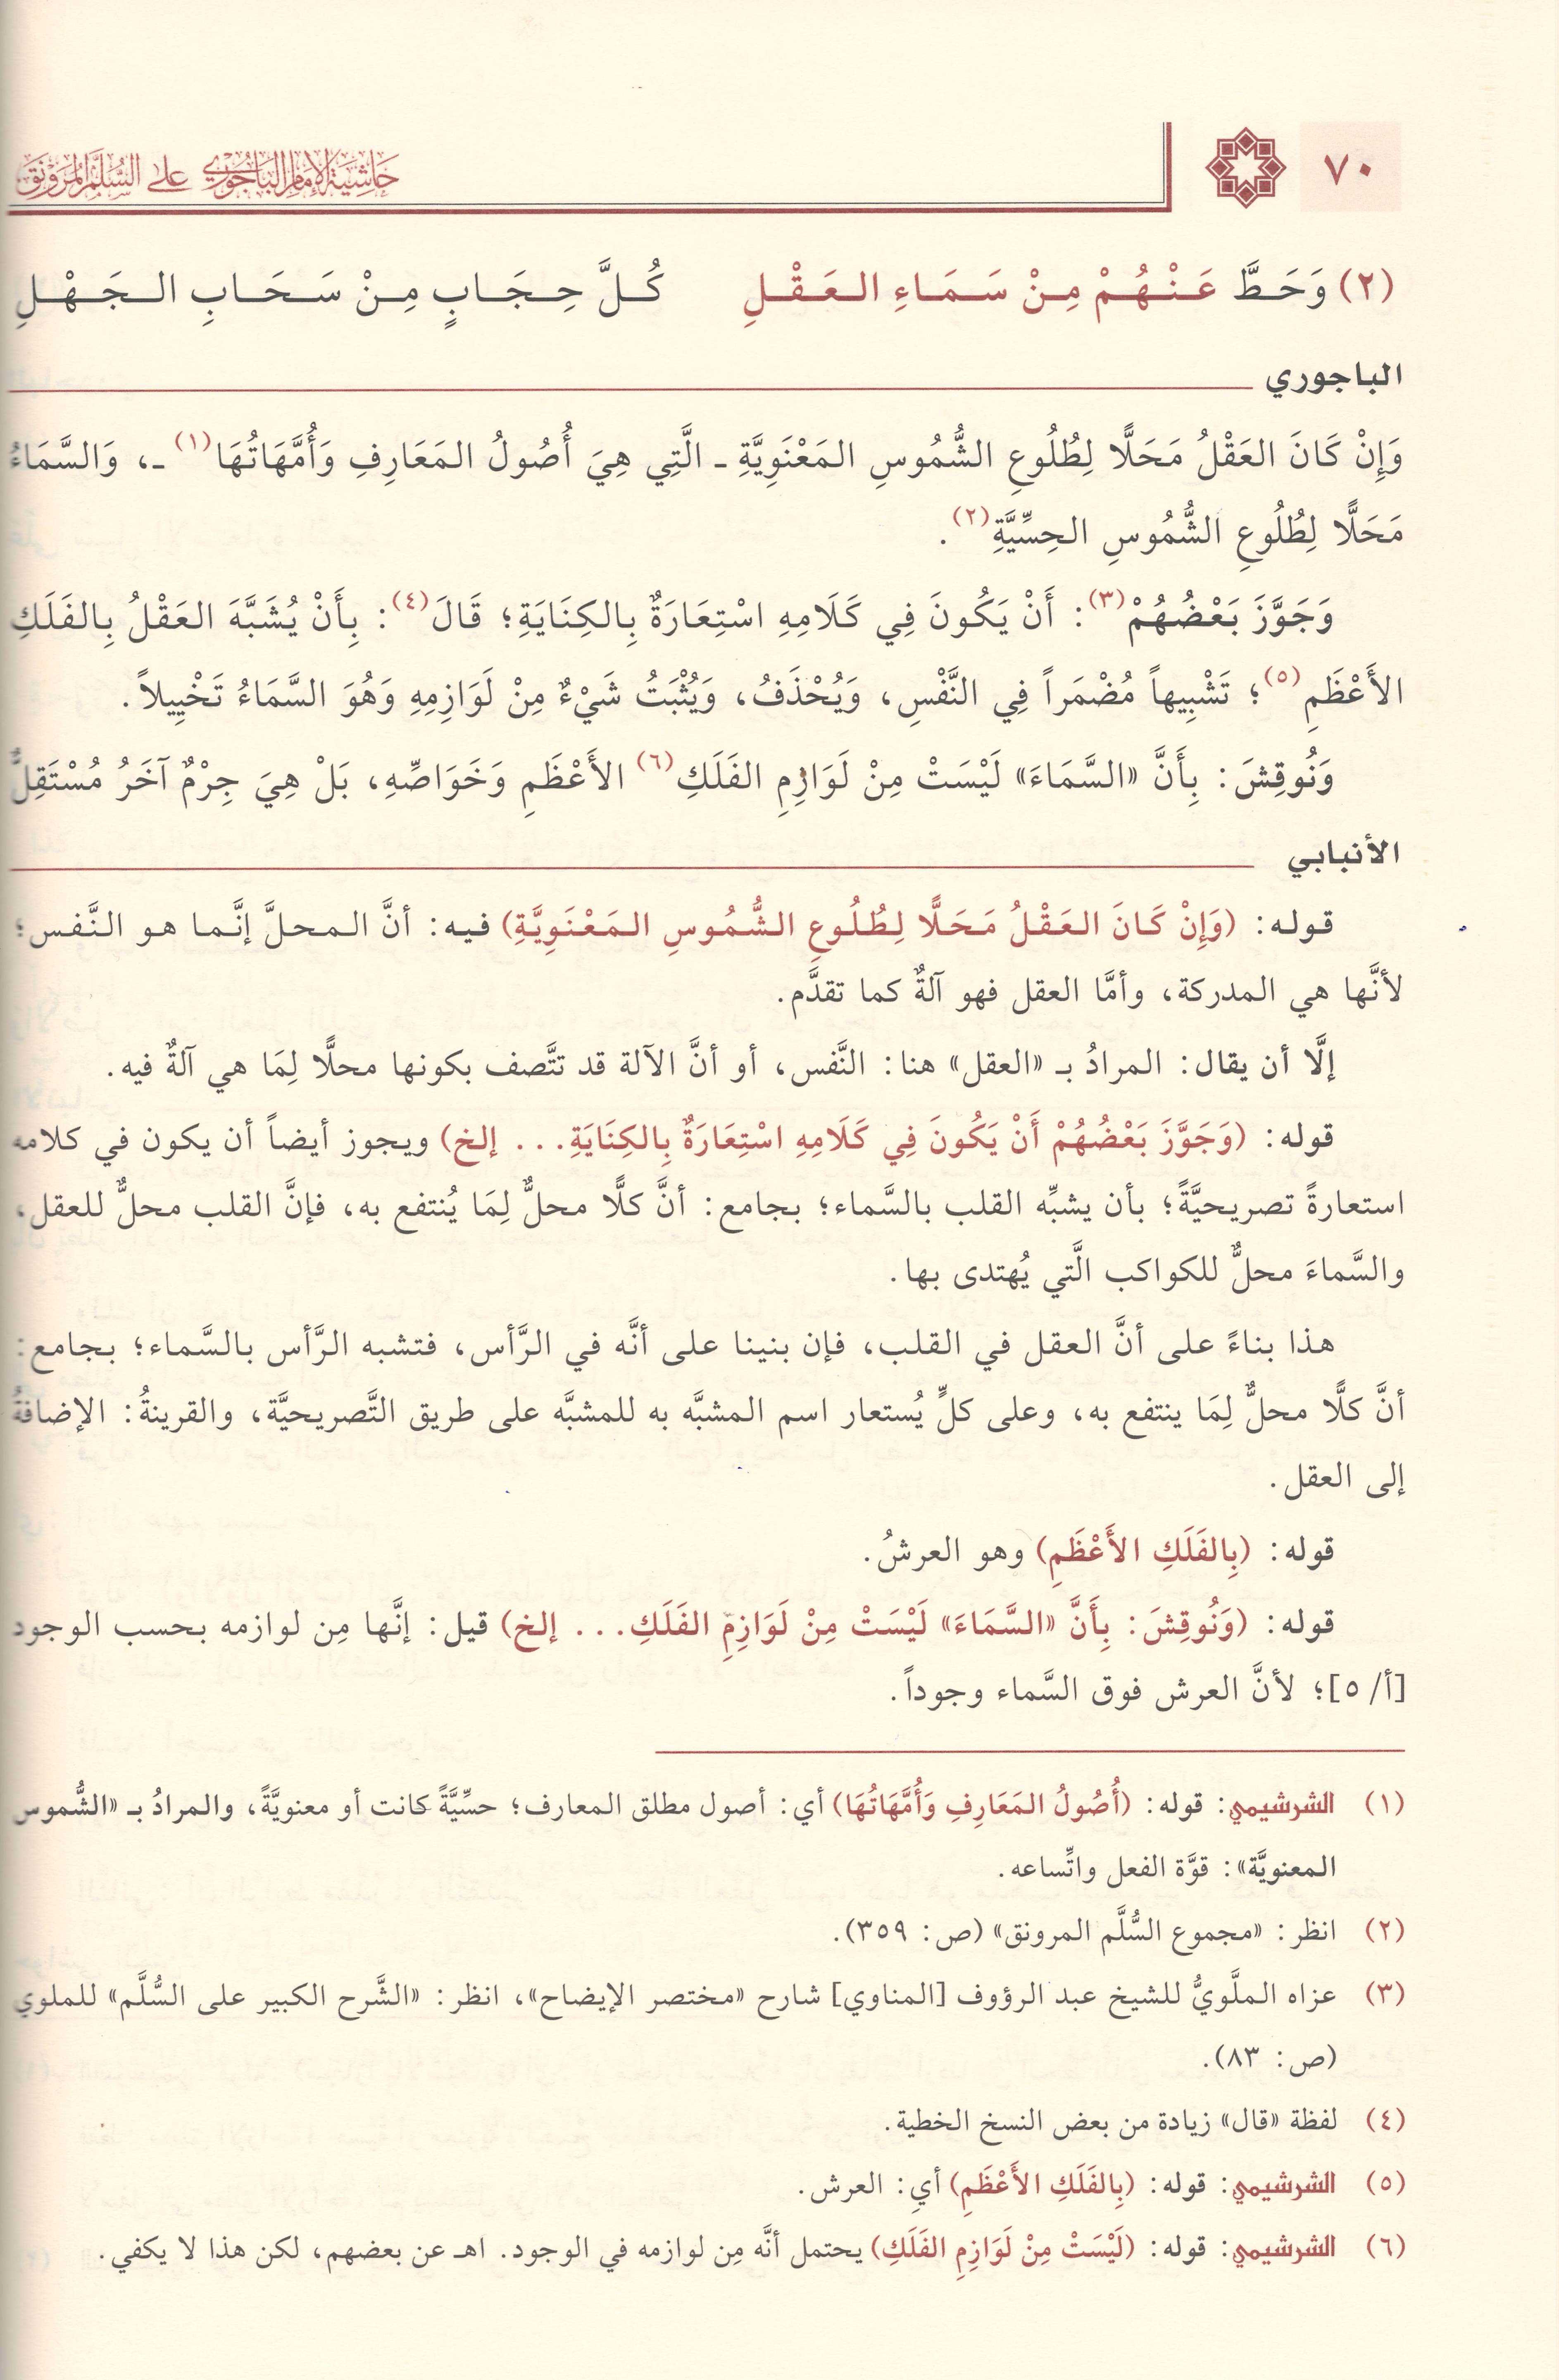 ٧٠
حَاشِيَةُ الإِمَامِ البَاجُورِيِّ عَلَى السُّلَّمِ المُرَوْنَقِ
(٢) وَحَطَّ عَنْهُمْ مِنْ سَمَاءِ العَقْلِ كُلَّ حِجَابٍ مِنْ سَحَابِ الجَهْلِ
الباجوري
وَإِنْ كَانَ العَقْلُ مَحَلًّا لِطُلُوعِ الشُّمُوسِ المَعْنَوِيَّةِ ـ الَّتِي هِيَ أُصُولُ المَعَارِفِ وَأُمَّهَاتُهَا(١) ـ، وَالسَّمَاءُ
مَحَلًّا لِطُلُوعِ الشُّمُوسِ الحِسِّيَّةِ(٢).
وَجَوَّزَ بَعْضُهُمْ(٣): أَنْ يَكُونَ فِي كَلَامِهِ اسْتِعَارَةٌ بِالكِنَايَةِ؛ قَالَ(٤): بِأَنْ يُشَبَّهَ العَقْلُ بِالفَلَكِ
الأَعْظَمِ(٥)؛ تَشْبِيهاً مُضْمَراً فِي النَّفْسِ، وَيُحْذَفُ، وَيُثْبَتُ شَيْءٌ مِنْ لَوَازِمِهِ وَهُوَ السَّمَاءُ تَخْيِيلاً.
وَنُوقِشَ: بِأَنَّ «السَّمَاءَ» لَيْسَتْ مِنْ لَوَازِمِ الفَلَكِ(٦) الأَعْظَمِ وَخَوَاصِّهِ، بَلْ هِيَ جِرْمٌ آخَرُ مُسْتَقِلٌّ
الأنبابي
قوله: (وَإِنْ كَانَ العَقْلُ مَحَلًّا لِطُلُوعِ الشُّمُوسِ المَعْنَوِيَّةِ) فيه: أنَّ المحلَّ إنَّما هو النَّفس؛
لأنَّها هي المدركة، وأمَّا العقل فهو آلةٌ كما تقدَّم.
إلَّا أن يقال: المرادُ بـ «العقل» هنا: النَّفس، أو أنَّ الآلة قد تتَّصف بكونها محلًّا لِمَا هي آلةٌ فيه.
قوله: (وَجَوَّزَ بَعْضُهُمْ أَنْ يَكُونَ فِي كَلَامِهِ اسْتِعَارَةٌ بِالكِنَايَةِ... إلخ) ويجوز أيضاً أن يكون في كلامه
استعارةً تصريحيَّةً؛ بأن يشبِّه القلب بالسَّماء؛ بجامع: أنَّ كلًّا محلٌّ لِمَا يُنتفع به، فإنَّ القلب محلٌّ للعقل،
والسَّماءَ محلٌّ للكواكب الَّتي يُهتدى بها.
هذا بناءً على أنَّ العقل في القلب، فإن بنينا على أنَّه في الرَّأس، فتشبه الرَّأس بالسَّماء؛ بجامع:
أنَّ كلًّا محلٌّ لِمَا ينتفع به، وعلى كلٍّ يُستعار اسم المشبَّه به للمشبَّه على طريق التَّصريحيَّة، والقرينةُ: الإضافةُ
إلى العقل.
قوله: (بِالفَلَكِ الأَعْظَمِ) وهو العرشُ.
قوله: (وَنُوقِشَ: بِأَنَّ «السَّمَاءَ» لَيْسَتْ مِنْ لَوَازِمِ الفَلَكِ... إلخ) قيل: إنَّها مِن لوازمه بحسب الوجود
[أ/ ٥]؛ لأنَّ العرش فوق السَّماء وجوداً.
(١) الشرشيمي: قوله: (أُصُولُ المَعَارِفِ وَأُمَّهَاتُهَا) أي: أصول مطلق المعارف؛ حسِّيَّةً كانت أو معنويَّةً، والمرادُ بـ «الشُّموس
المعنويَّة»: قوَّة الفعل واتِّساعه.
(٢) انظر: «مجموع السُّلَّم المرونق» (ص: ٣٥٩).
(٣) عزاه الملَّويُّ للشيخ عبد الرؤوف [المناوي] شارح «مختصر الإيضاح»، انظر: «الشَّرح الكبير على السُّلَّم» للملوي
(ص: ٨٣).
(٤) لفظة «قال» زيادة من بعض النسخ الخطية.
(٥) الشرشيمي: قوله: (بِالفَلَكِ الأَعْظَمِ) أي: العرش.
(٦) الشرشيمي: قوله: (لَيْسَتْ مِنْ لَوَازِمِ الفَلَكِ) يحتمل أنَّه مِن لوازمه في الوجود. اهـ عن بعضهم، لكن هذا لا يكفي.